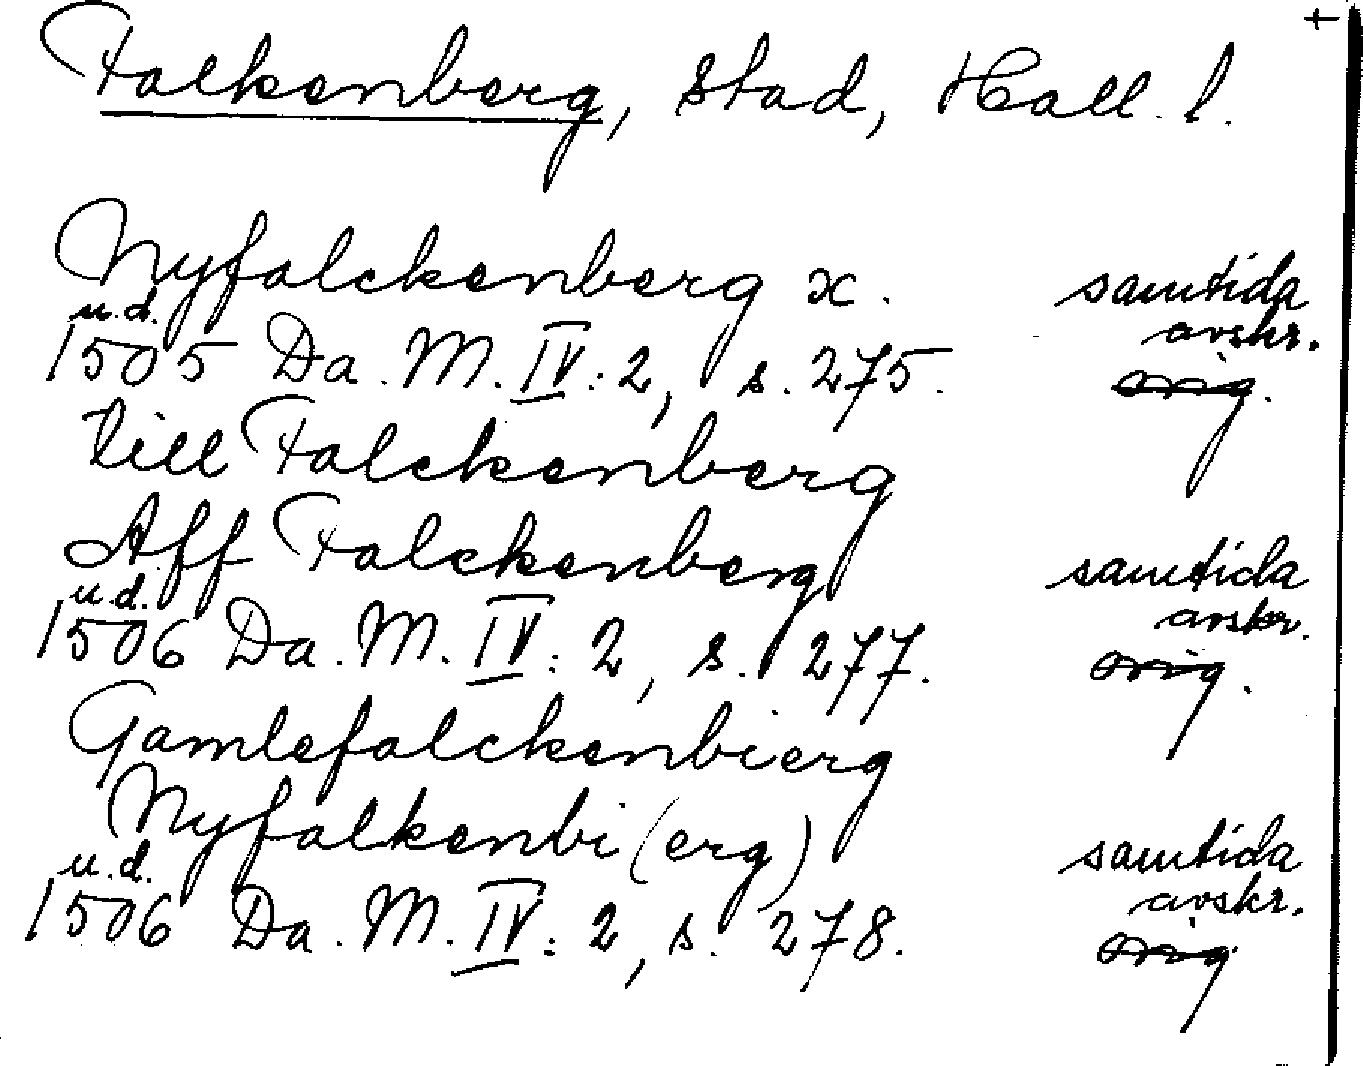 +
Falkenberg, stad, Hall. l.
Nyfalckenberg x. samtida
u.d. avskr.
1505 Da. M. IV: 2, s. 275. orig.
till Falckenberg
Aff Falckenberg samtida
u.d. avskr.
1506 Da. M. IV: 2, s. 277. orig.
Gamlefalckenbierg
Nyfalkenbi(erg) samtida
u.d. avskr.
1506 Da. M. IV: 2, s. 278. orig